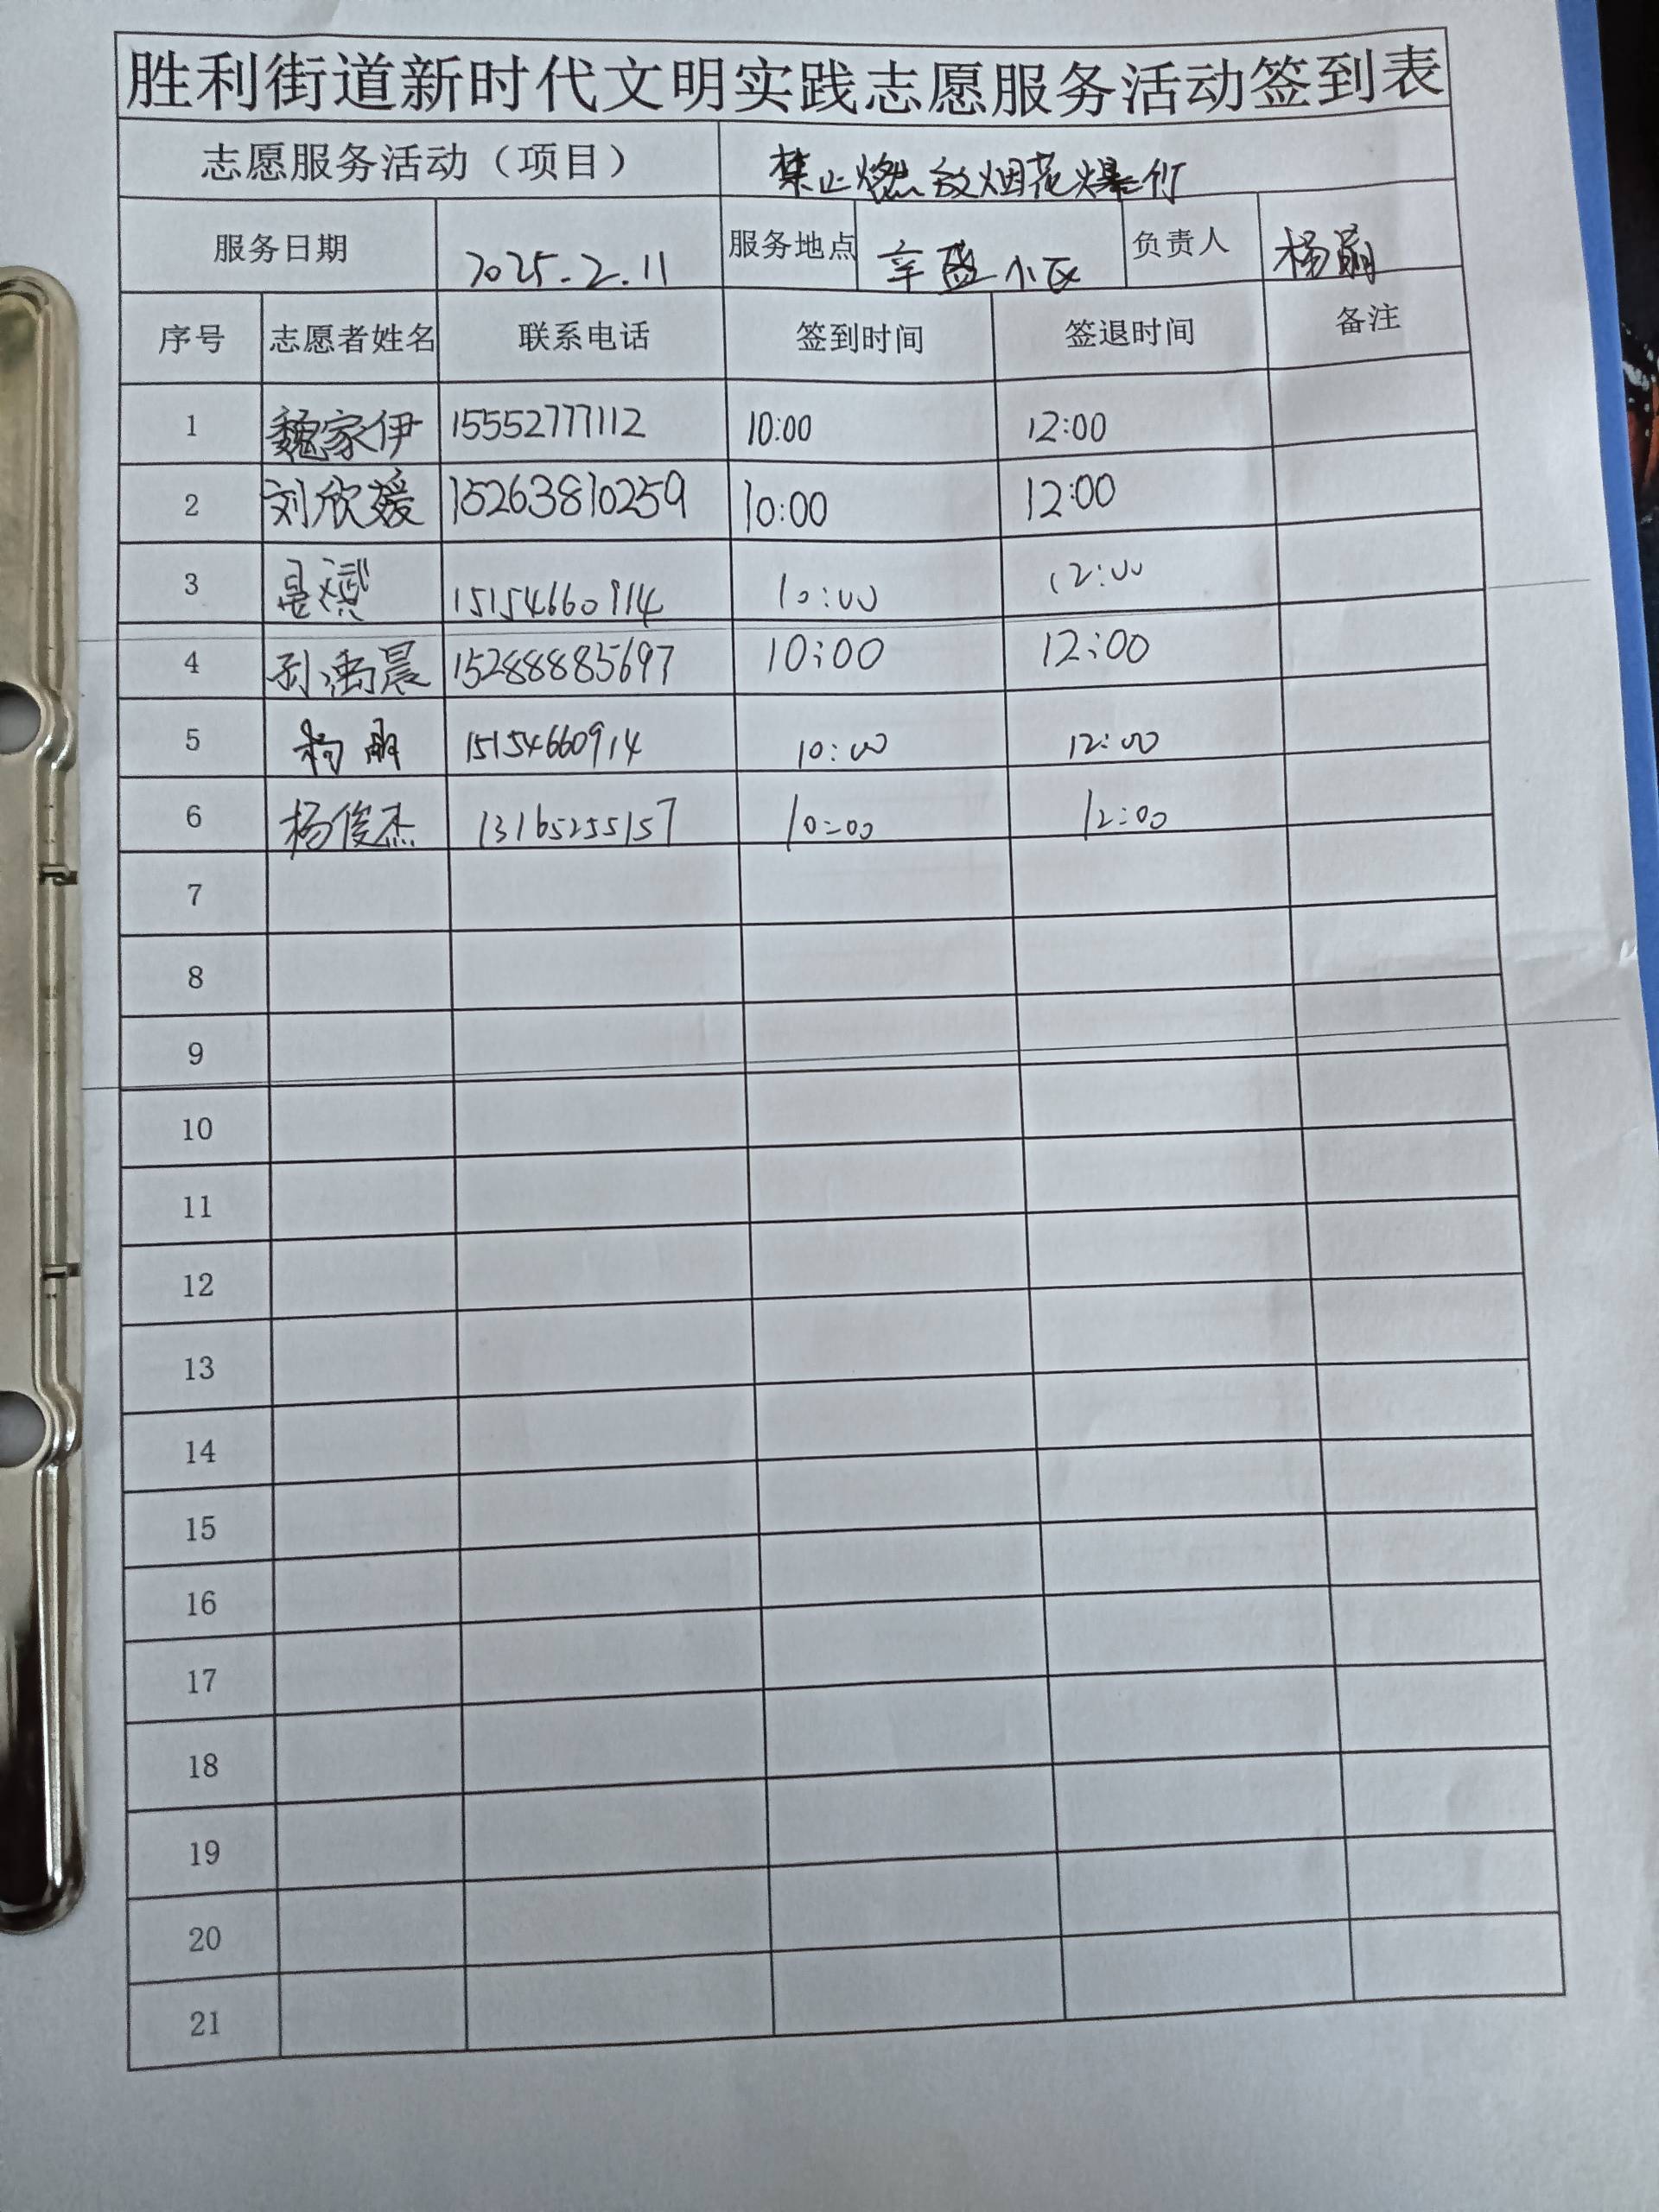 胜利街道新时代文明实践志愿服务活动签到表
志愿服务活动（项目） 禁止燃放烟花爆竹
服务日期 2025.2.11 服务地点 辛盛小区 负责人 杨
序号 志愿者姓名 联系电话 签到时间 签退时间 备注
1 魏家伊 15552777112 10:00 12:00
2 刘欣媛 15263810259 10:00 12:00
3 15154660914 10:00 12:00
4 孙禹晨 15288885697 10:00 12:00
5 15154660914 10:00 12:00
6 杨俊杰 13165255157 10:00 12:00
7
8
9
10
11
12
13
14
15
16
17
18
19
20
21